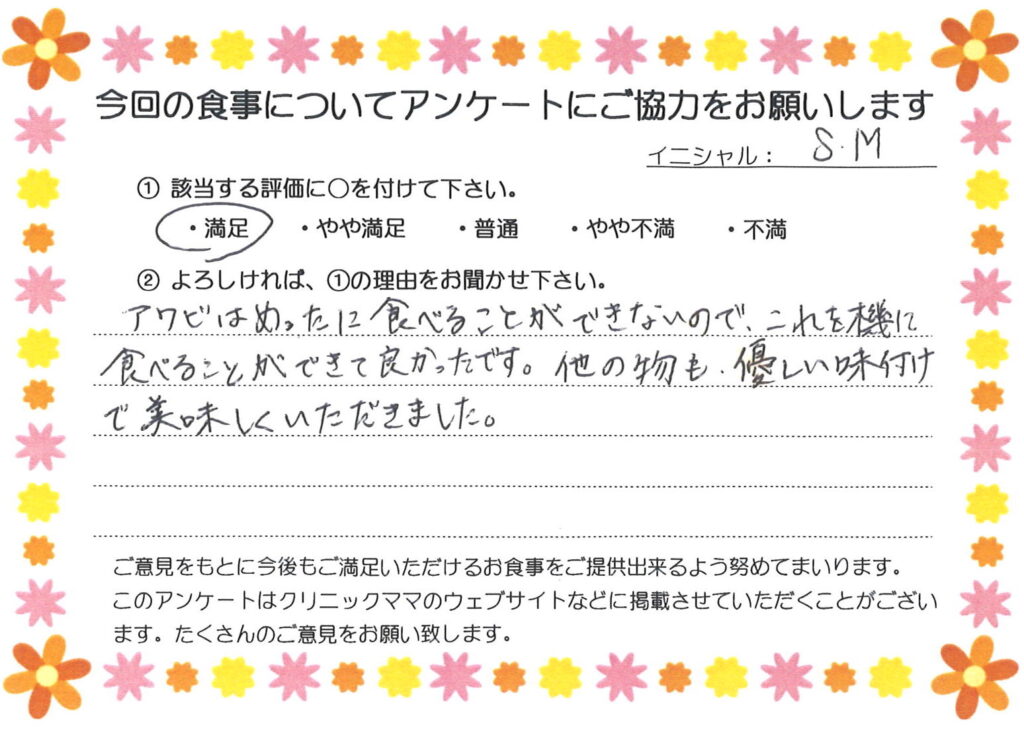 今回の食事についてアンケートにご協力をお願いします
イニシャル： S.M
① 該当する評価に○を付けて下さい。
・満足 ・やや満足 ・普通 ・やや不満 ・不満
② よろしければ、①の理由をお聞かせ下さい。
アワビはめったに食べることができないので、これを機に
食べることができて良かったです。他の物も、優しい味付け
で美味しくいただきました。
ご意見をもとに今後もご満足いただけるお食事をご提供出来るよう努めてまいります。
このアンケートはクリニックママのウェブサイトなどに掲載させていただくことがござい
ます。たくさんのご意見をお願い致します。